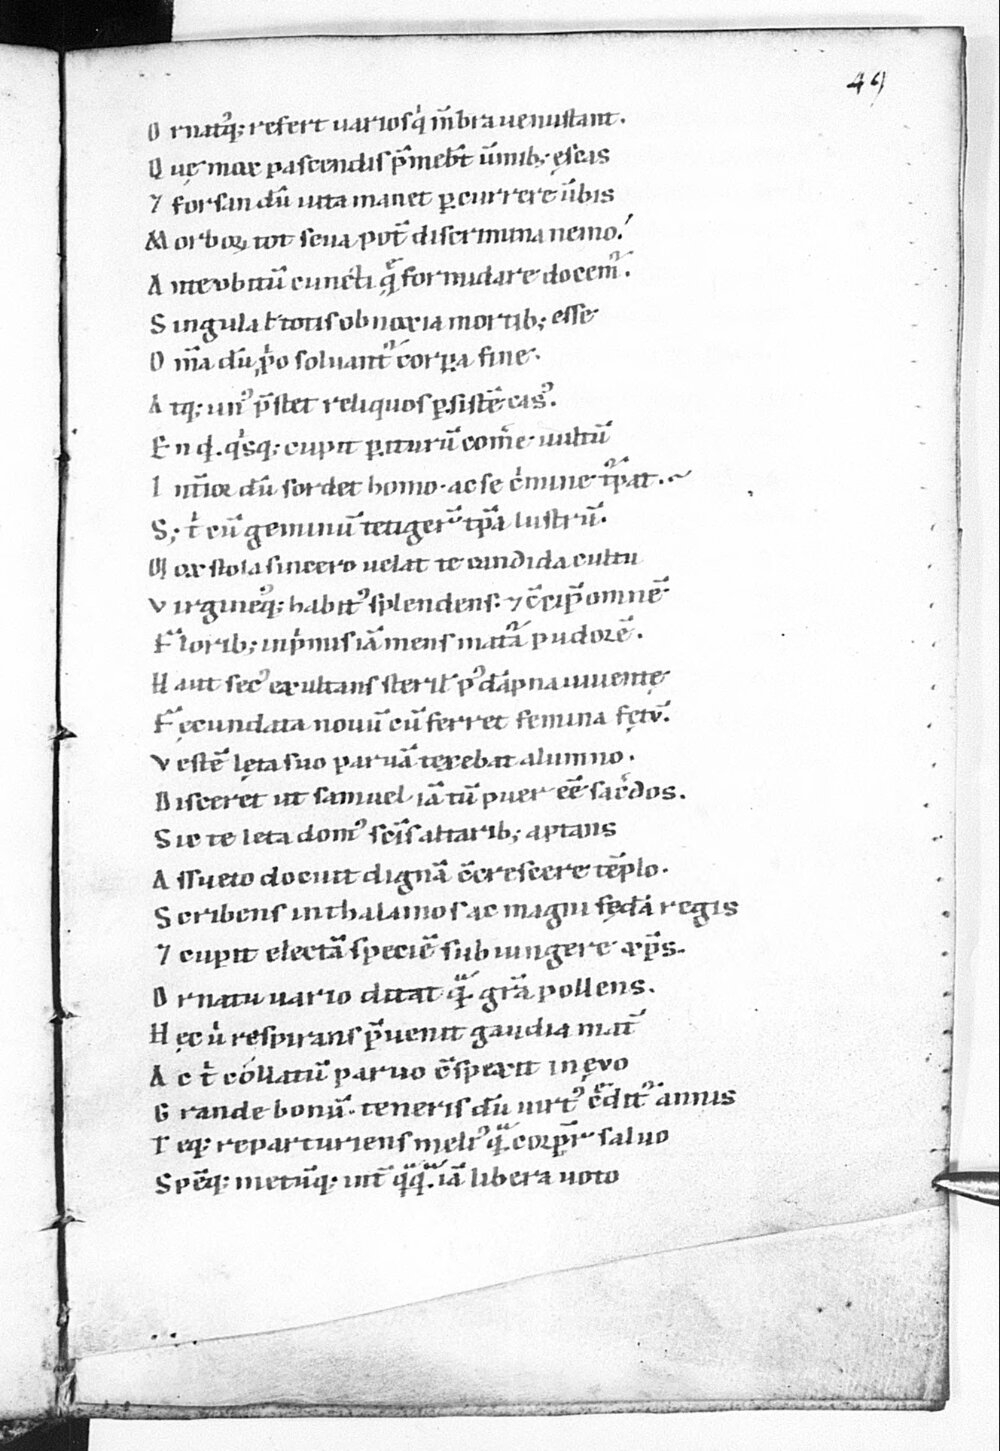 49
O rnatꝰq; refert uariosq i m̄bra uenustant.
Q uę mox pascendis p̄mebt̄ ūmib; ęscas
⁊ forsan dū uita manet ꝑcurrere ūbis
M orboꝝ tot seua pot̄ discrimina nemo!
A nte obitū cuncti formidare docem᷑.
S ingula t totis obnoxia mortib; esse
O m̄a dū ꝓpo soluant᷑ corꝑa fine.
A tq; unꝰ p̄stet reliquos ꝑsistē casꝰ.
E n qͥsq; cupit ꝑiturū com̄e uultū
I nt̄ioꝛ dū sordet homo. ac se cͥmine
S; t cū geminū tetigerᷓ tp̄a lustrū.
M ox stola sincero uelat te candida cultu
V irgineoq; habitꝰ splendens. ⁊ c̄cip̄ omnē
F loribꝰ; inpͥmis iā mens matᷓa pudorē.
H aut secꝰ exultans steril pꝰ dāpna iuuentę
F ęcundata nouū cū ferret femina fętū.
V estē lęta suo paruā texebat alumno.
D isceret ut samuel iā tū puer eē sac̄dos.
S ic te leta domꝰ sc̄is altarib; aptans
A ssueto docuit dignā c̄crescere tēplo.
S cribens in thalamos ac magni fędā regis
⁊ cupit electā speciē subiungere xp̄s.
O rnatu uario ditat qᷓ gr̄a pollens.
H ęc ů respirans p̄uenit gaudia mat̄
A c t collatū paruo c̄spexit in ęvo
G rande bonū. teneris dū uirtꝰ c̄dit᷑ annis
T eq; reparturiens meliꝰ qᷓ corꝑe saluo
S pēq; metūq; int̄ iā libera uoto